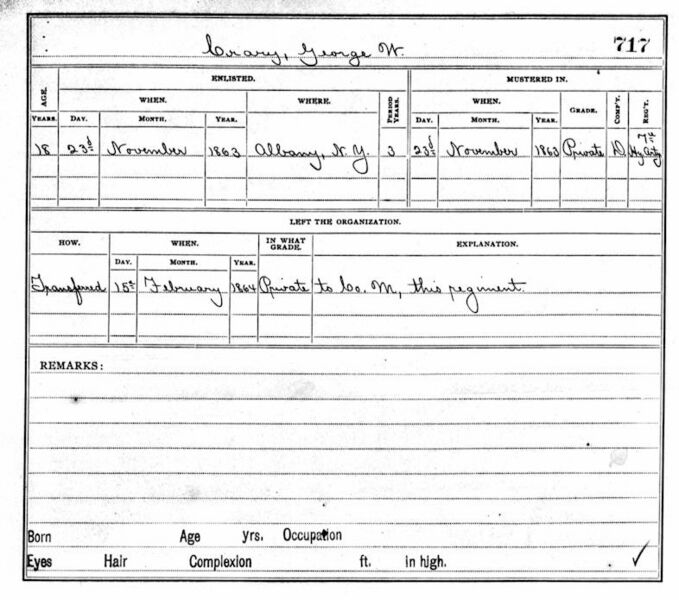 Crary, George W. 717
ENLISTED. MUSTERED IN.
AGE. WHEN. WHERE. PERIOD YEARS. WHEN. GRADE. COMP'Y. REG'T.
YEARS. DAY. MONTH. YEAR. DAY. MONTH. YEAR.
18 23d November 1863 Albany, N.Y. 3 23d November 1863 Private D. 7th Hy Arty
LEFT THE ORGANIZATION.
HOW. WHEN. IN WHAT GRADE. EXPLANATION.
DAY. MONTH. YEAR.
Transferred 15th February 1864 Private to Co. M, this regiment.
REMARKS:
Born Age yrs. Occupation
Eyes Hair Complexion ft. in high.